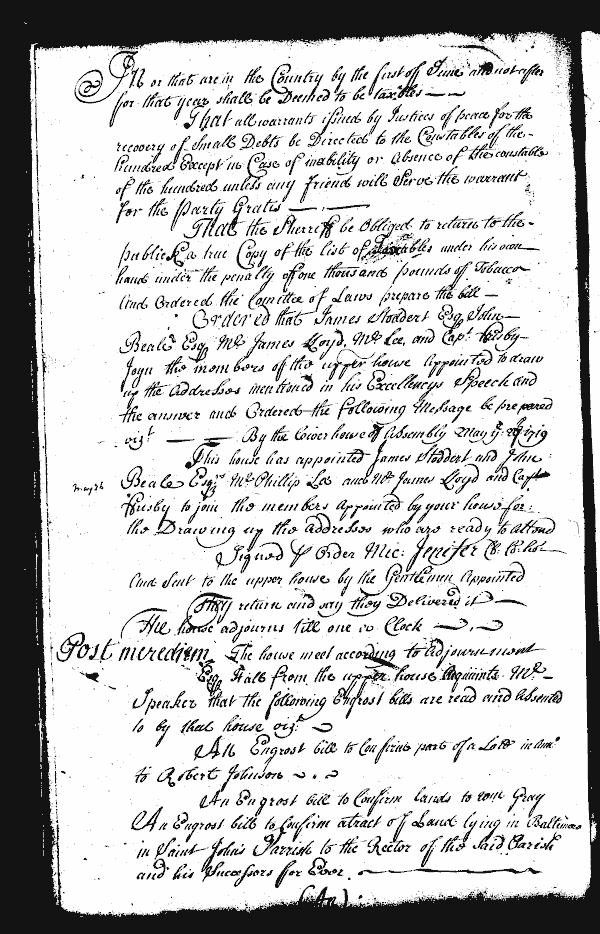 In or that are in the Country by the first off June and not after
for that year shall be Deemed to be taxibles
That all warrants issued by Justices of peace for the
recovery of Small Debts be Directed to the Constables of the
hundred Except in Case of inability or Absence of the constable
of the hundred unless any friend will Serve the warrant
for the Party Gratis
That the Sherriff be Obliged to return to the
publick a true Copy of the list of Taxables under his own
hand under the penalty of one thousand pounds of Tobacco
And Ordered the Comittee of Laws prepare the bill
Ordered that James Stoddert Esqr John
Beale Esqr Mr James Lloyd, Mr Lee, and Capt frisby
Joyn the members of the upper house Appointed to draw
up the Addresses mentioned in his Excellencys Speech and
the answer and Ordered the following Message be prepared
vizt By the Lower house of Assembly May ye 26 1719
This house has appointed James Stoddert and John
May 26 Beale Esqrs Mr Phillip Lee and Mr James Lloyd and Capt
frisby to join the members Appointed by your house for
the Drawing up the Addresses who are ready to Attend
Signed P Order Mic: Jenifer
And Sent to the upper house by the Gentlemen Appointed
They return and say they Delivered it
The house adjourns till one o Clock
Post merediem The house meet according to Adjournment
Hall from the upper house Acquaints Mr
Speaker that the following Engrost bills are read and Assented
to by that house vizt
An Engrost bill to Confirm part of a Lott in
to Robert Johnson
An Engrost bill to Confirm lands to Gray
An Engrost bill to Confirm a tract of Land lying in Baltimore
in Saint Johns Parrish to the Rector of the said Parish
and his Successors for Ever
(An)